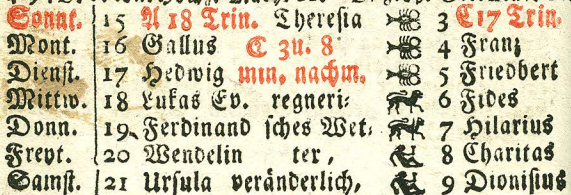 Sonnt. 15 A 18 Trin. Theresia 3 C 17 Trin.
Mont. 16 Gallus C 3 U. 8 4 Franz
Dienst. 17 Hedwig min. nachm. 5 Friedbert
Mittw. 18 Lukas Ev. regneri- 6 Fides
Donn. 19 Ferdinand sches Wet- 7 Hilarius
Freyt. 20 Wendelin ter, 8 Charitas
Samst. 21 Ursula veränderlich, 9 Dionisius